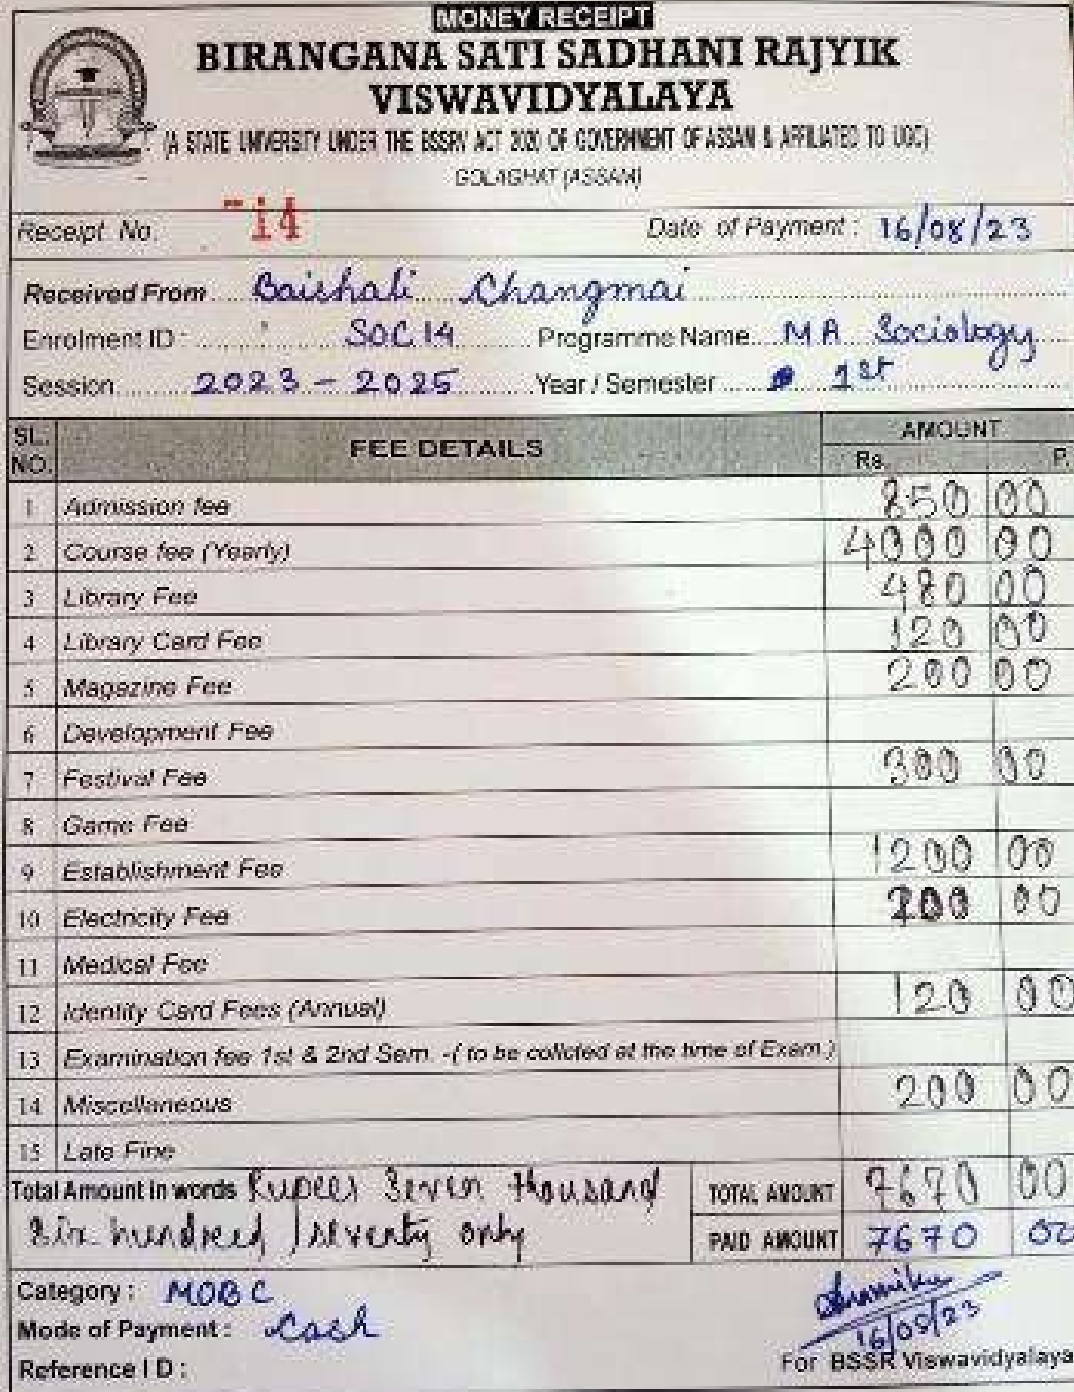 MONEY RECEIPT
BIRANGANA SATI SADHANI RAJYIK
VISWAVIDYALAYA
(A STATE UNIVERSITY UNDER THE BSSRV ACT 2020 OF GOVERNMENT OF ASSAM & AFFILIATED TO UGC)
GOLAGHAT (ASSAM)
Receipt No. 14 Date of Payment : 16/08/23
Received From Baishali Changmai
Enrolment ID : SOC 14 Programme Name MA Sociology
Session 2023 - 2025 Year / Semester 1st
SL. NO. FEE DETAILS AMOUNT Rs. P.
1 Admission fee 850 00
2 Course fee (Yearly) 4000 00
3 Library Fee 480 00
4 Library Card Fee 120 00
5 Magazine Fee 200 00
6 Development Fee
7 Festival Fee 300 00
8 Game Fee
9 Establishment Fee 1200 00
10 Electricity Fee 200 00
11 Medical Fee
12 Identity Card Fees (Annual) 120 00
13 Examination fee 1st & 2nd Sem. -( to be collcted at the time of Exam.)
14 Miscellaneous 200 00
15 Late Fine
Total Amount in words Rupees Seven thousand TOTAL AMOUNT 7670 00
Six hundred seventy only PAID AMOUNT 7670 00
Category : MOBC
Mode of Payment : Cash 16/08/23
Reference I D : For BSSR Viswavidyalaya